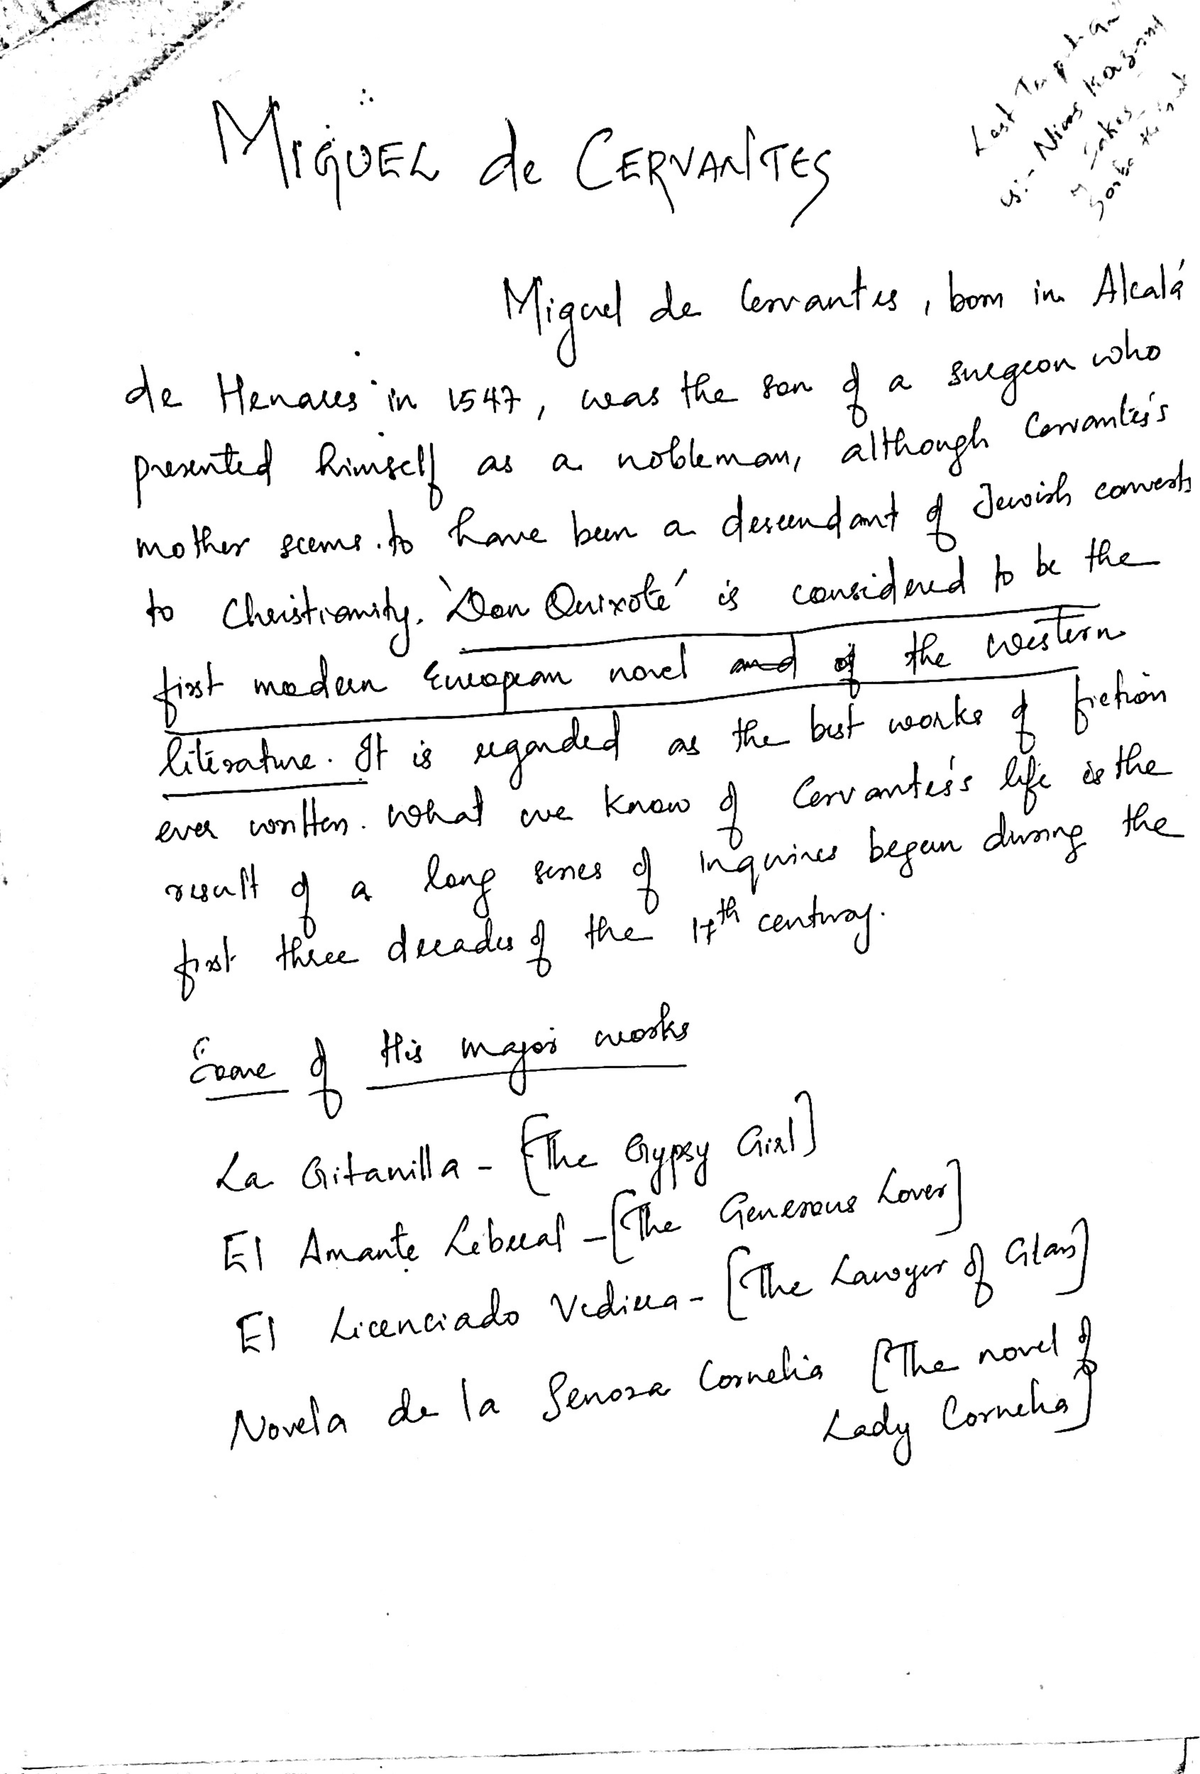 MIGUEL de CERVANTES
Last
Miguel de Cervantes, born in Alcalá
de Henares in 1547, was the son of a surgeon who
presented himself as a nobleman, although Cervantes's
mother seems to have been a descendant of Jewish converts
to Christianity. 'Don Quixote' is considered to be the
first modern European novel and of the western
literature. It is regarded as the best works of fiction
ever written. What we know of Cervantes's life is the
result of a long series of inquires begun during the
first three decades of the 17th century.
Some of His major works
La Gitanilla - [The Gypsy Girl]
El Amante Liberal - [The Generous Lover]
El Licenciado Vidiera - [The Lawyer of Glass]
Novela de la Senora Cornelia [The novel of
Lady Cornelia]